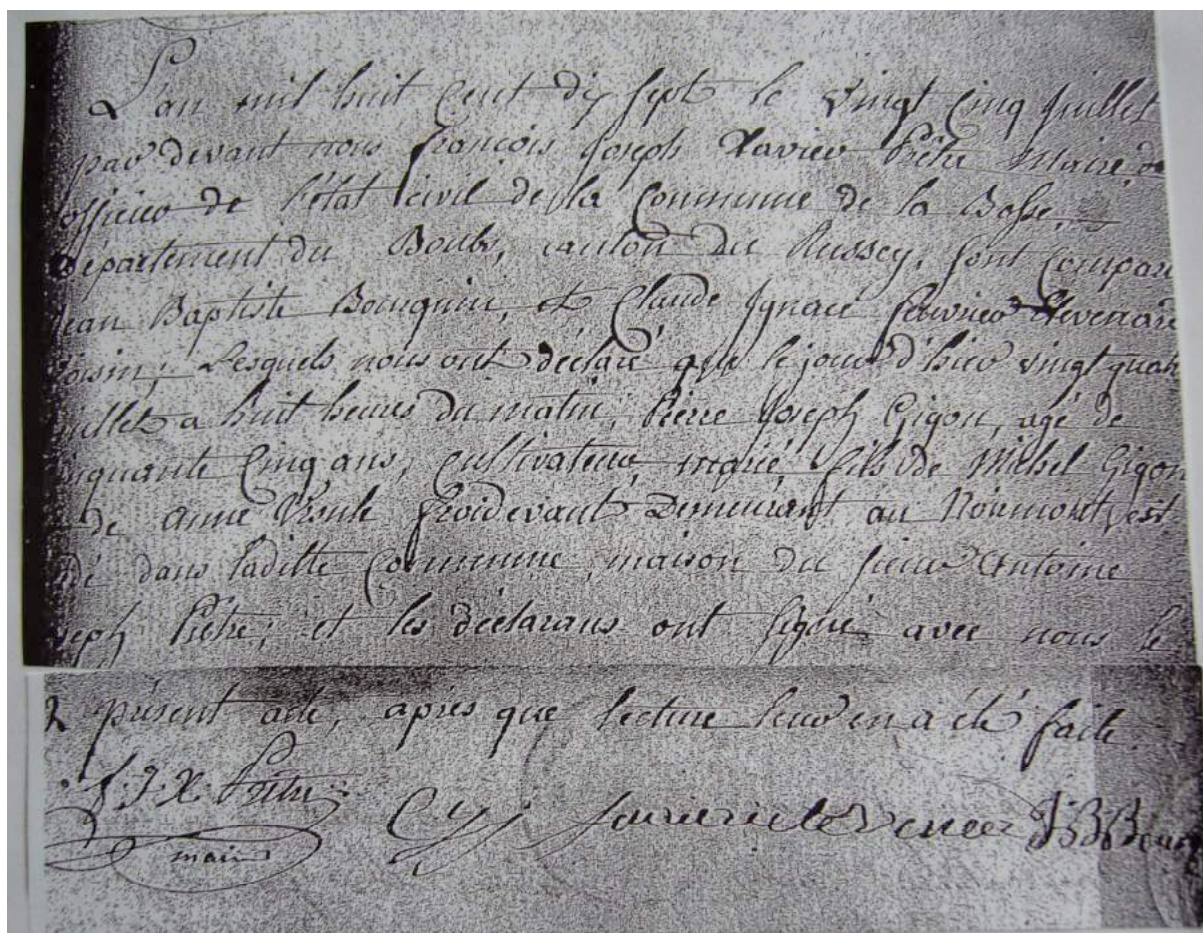 L'an mil huit cent dix sept le vingt cinq juillet
par devant nous françois Joseph Xavier Prêtre Maire
officier de l'état civil de la Commune de la Bosse,
Département du Doubs, canton du Russey, sont Compar
Jean Baptiste Bouquin, et Claude Ignace
voisin; Lesquels nous ont déclaré que le jour d'hier vingt quat
uillet a huit heures du matin; Pierre Joseph Gigon, agé de
nquante Cinq ans, cultivateur marié fils de Michel Gigon
de anne Froidevaux Demeurant au Noirmont, est
dé dans laditte Commune, maison du sieur Antoine
seph Prêtre; et les déclarans ont signé avec nous le
présent acte, après que lecture leur en a été faite.
f. J. X. Prêtre
maire
J B Bouq